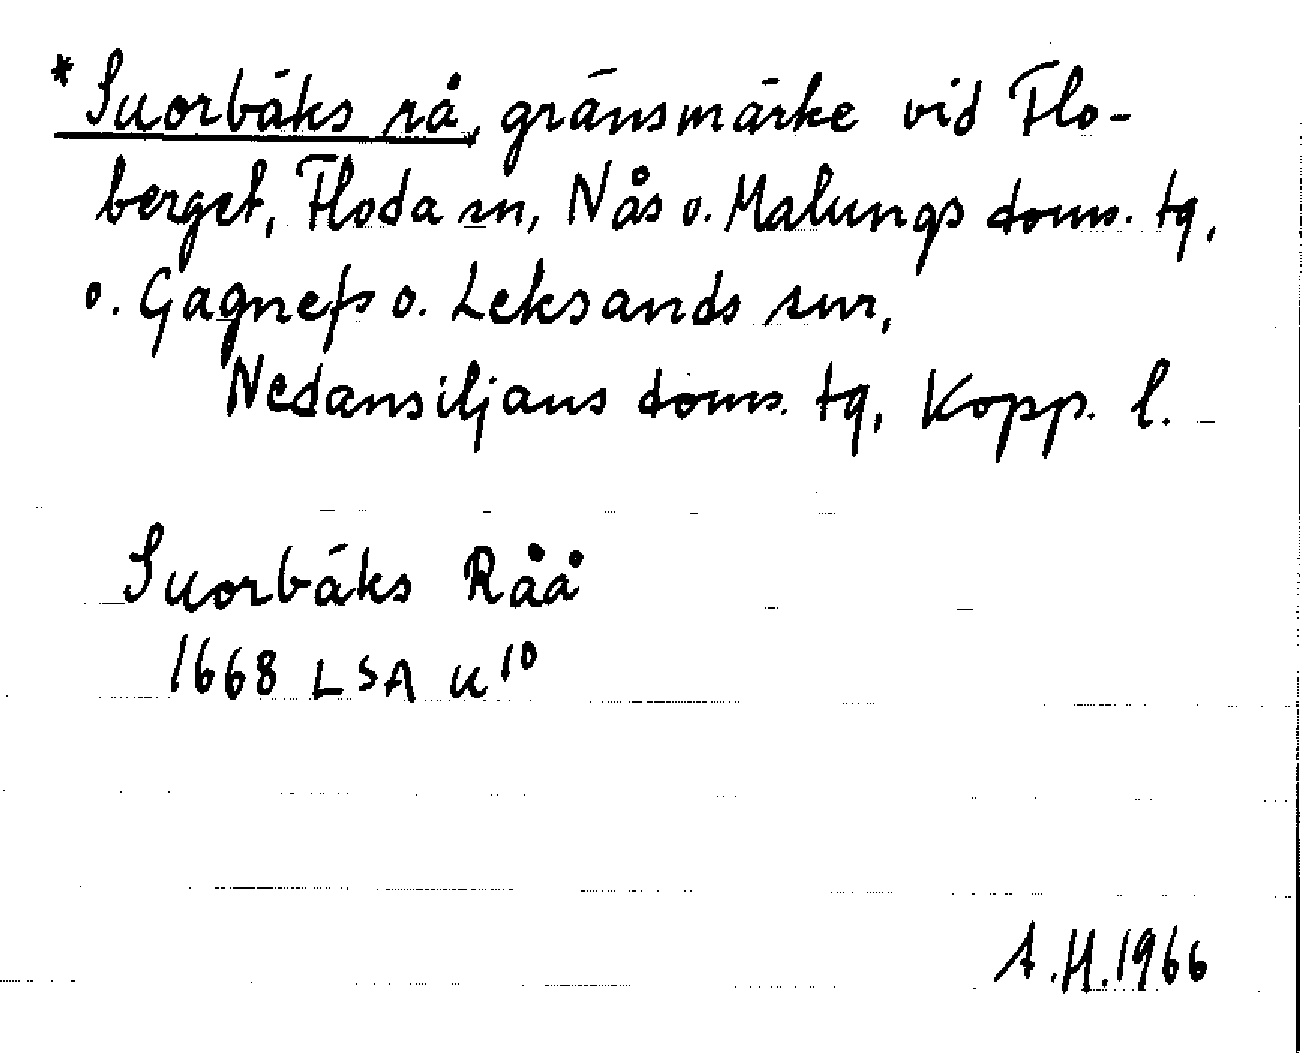 *Suorbäks rå, gränsmärke vid Flo-
berget, Floda sn, Nås o. Malungs doms. tg,
o. Gagnefs o. Leksands snr,
Nedansiljans doms. tg, Kopp. l.
Suorbäks Råå
1668 LSA U 10
A.H. 1966